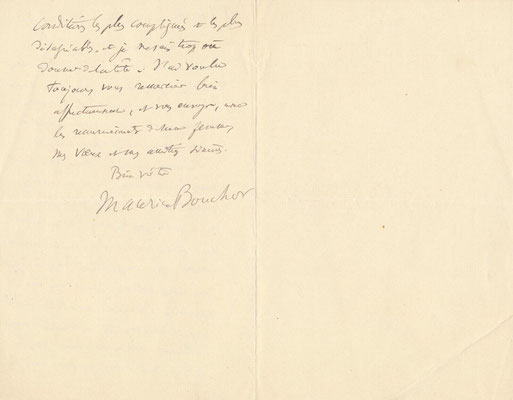 conditions les plus compliqués et les plus
désagréables. et je ne sais trop où
donner de la tête. J'ai voulu
toujours vous remercier bien
affectueusement, et vous envoyer, avec
les remerciements de ma femme,
mes vœux et mes amitiés sincères.
Bien vôtre
Maurice Bouchor